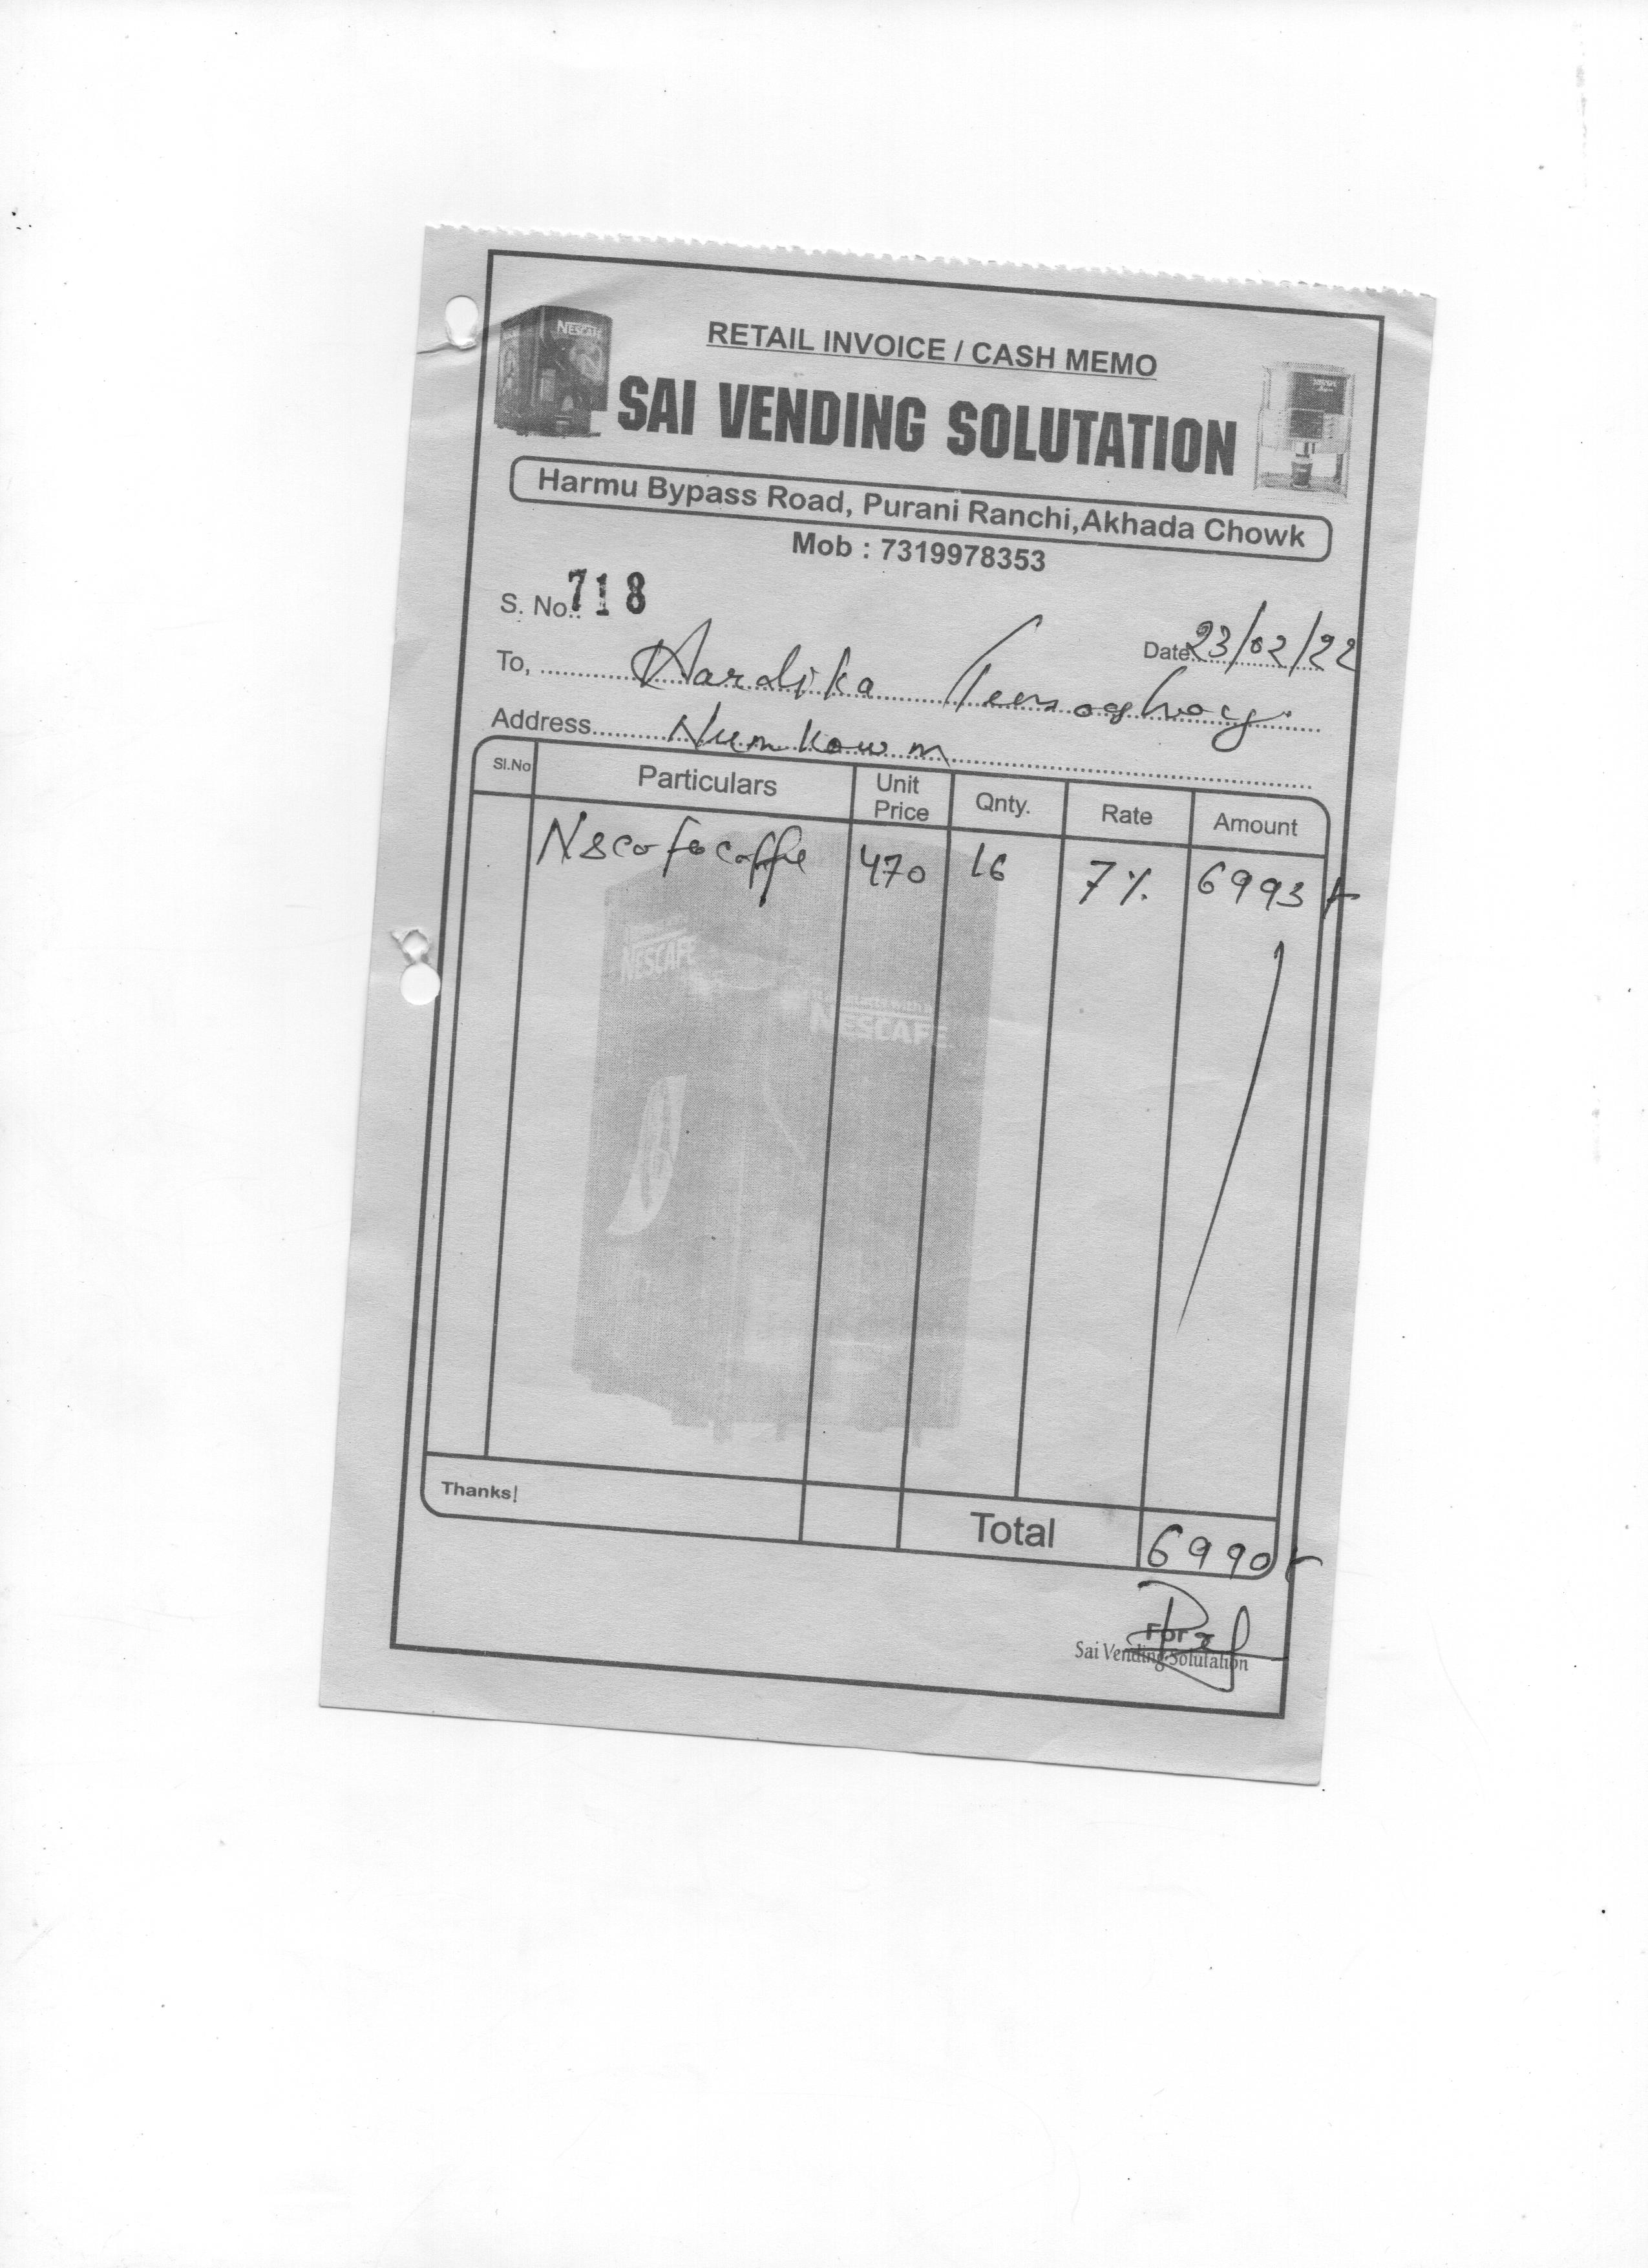 RETAIL INVOICE / CASH MEMO
NESCAFE
SAI VENDING SOLUTATION
Harmu Bypass Road, Purani Ranchi,Akhada Chowk
Mob : 7319978353
S. No.: 718
Date 23/02/22
To, Hardika
Address Numkowm
Sl.No Particulars Unit Price Qnty. Rate Amount
Nscofecoffe 470 16 7% 6993
NESCAFE
NESCAFE
Thanks! Total 6990
For
Sai Vending Solutation